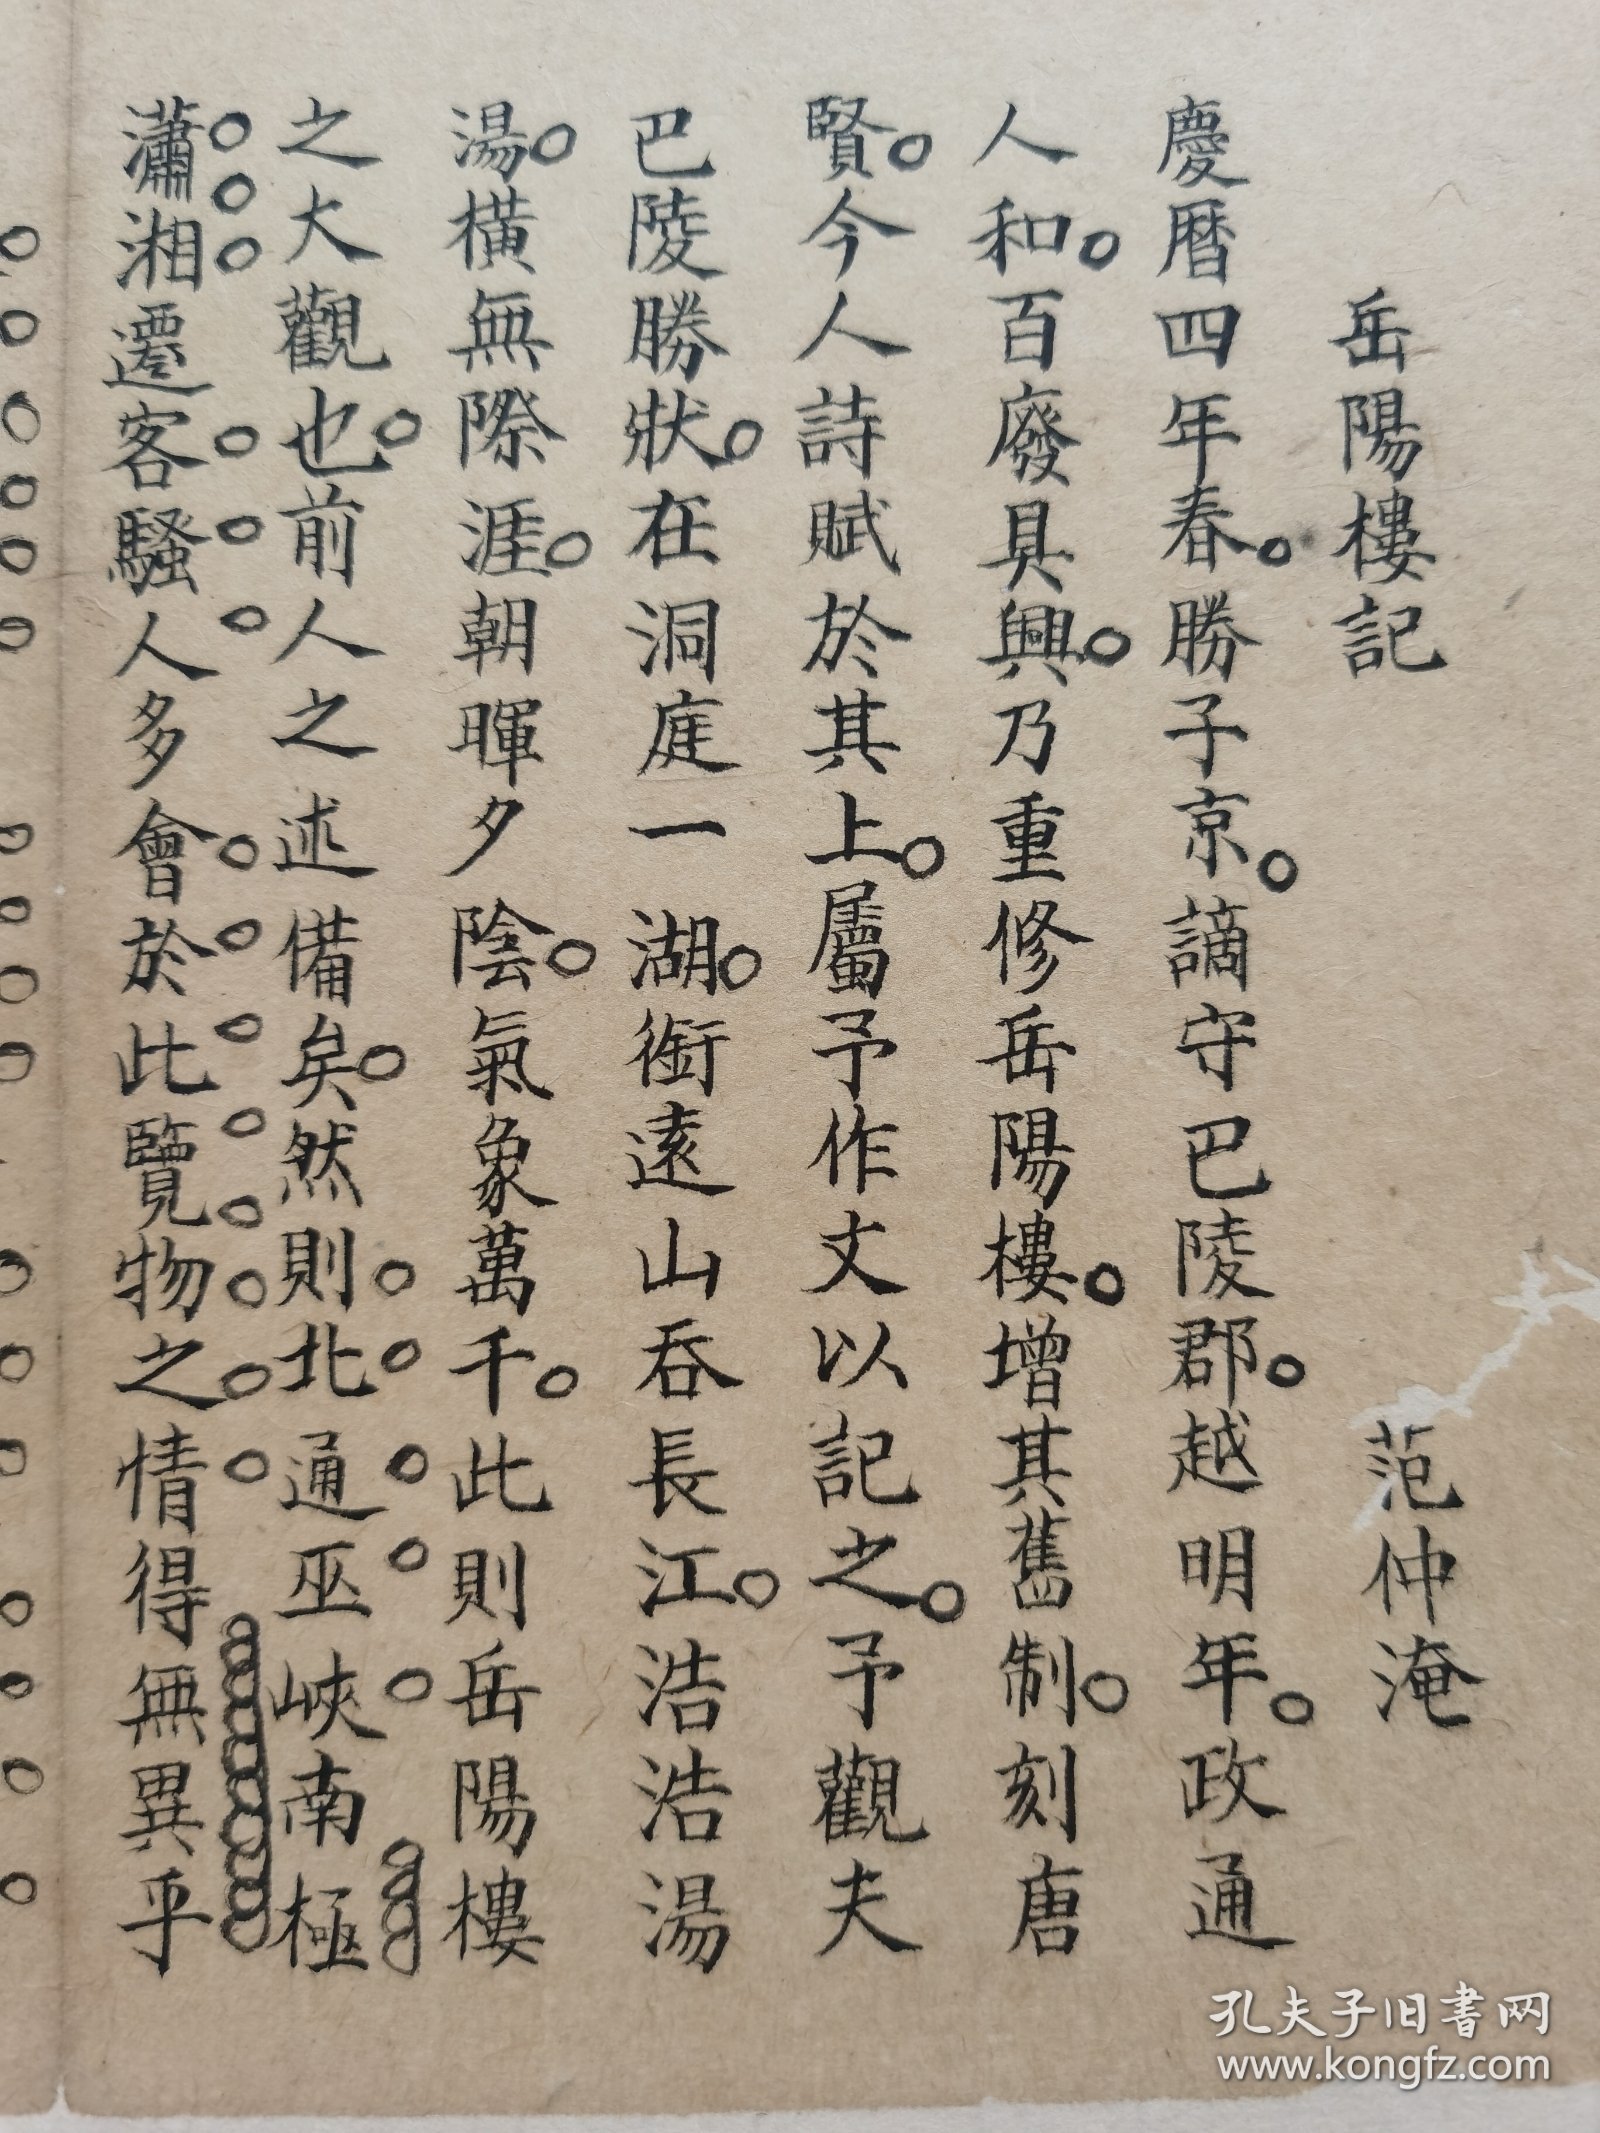 岳陽樓記 范仲淹
慶曆四年春。勝子京。謫守巴陵郡。越明年。政通
人和。百廢具興。乃重修岳陽樓。增其舊制。刻唐
賢。今人詩賦於其上。屬予作文以記之。予觀夫
巴陵勝狀。在洞庭一湖。銜遠山吞長江。浩浩湯
湯。橫無際涯。朝暉夕陰。氣象萬千。此則岳陽樓
之大觀也。前人之述備矣。然則北通巫峽南極
瀟湘遷客騷人多會於此覽物之情得無異乎
孔夫子旧書网
www.kongfz.com